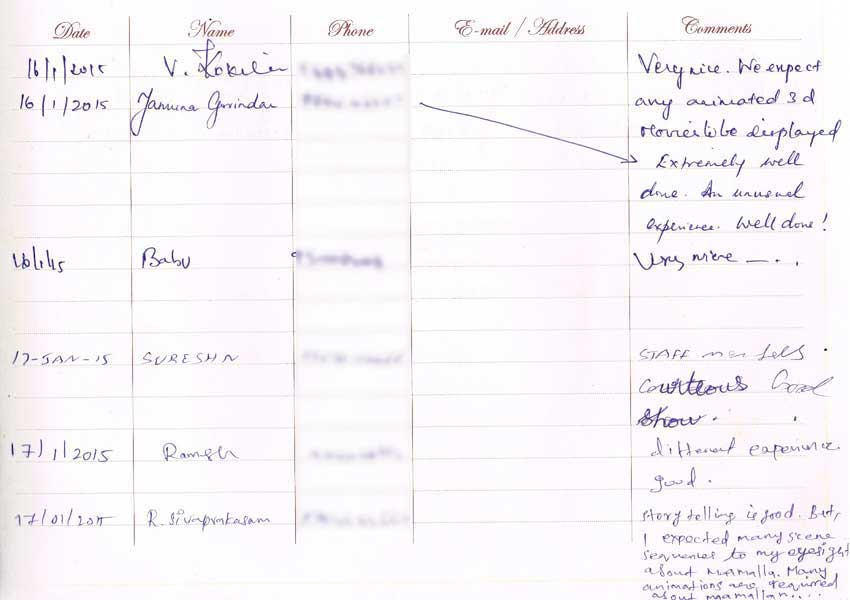 Date Name Phone E-mail / Address Comments
16/1/2015 V. Kokila Very nice. We expect
16/1/2015 Jamuna Govindan any animated 3d
movies to be displayed
Extremely well
done. An unusual
experience. Well done!
16/1/15 Babu Very nice
17-JAN-15 SURESH N STAFF
Courteous Good
Show.
17/1/2015 Ramesh different experience.
good.
17/01/2015 R. Sivaprakasam Story telling is good. But,
I expected many scene
sequences to my eyesight
about Mamalla. Many
animations are required
about mamallan....